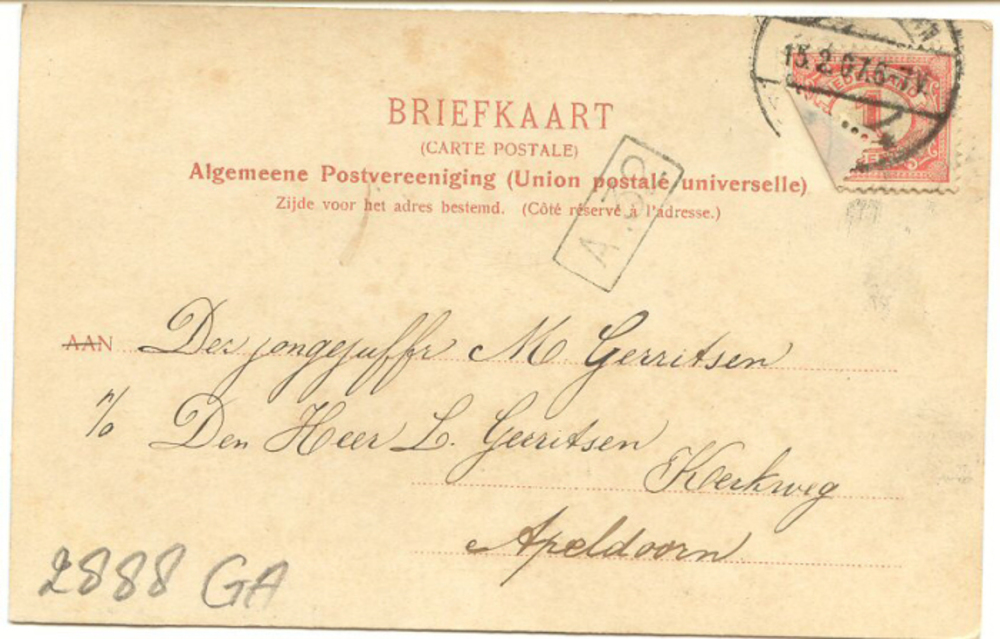 15.2.07.6-7V.
1
BRIEFKAART
(CARTE POSTALE)
Algemeene Postvereeniging (Union postale universelle)
Zijde voor het adres bestemd. (Côté réservé à l'adresse.)
A.32
AAN Der jongejuffr M. Gerritsen
p/o Den Heer L. Gerritsen
Kerkweg
Apeldoorn
2888 GA